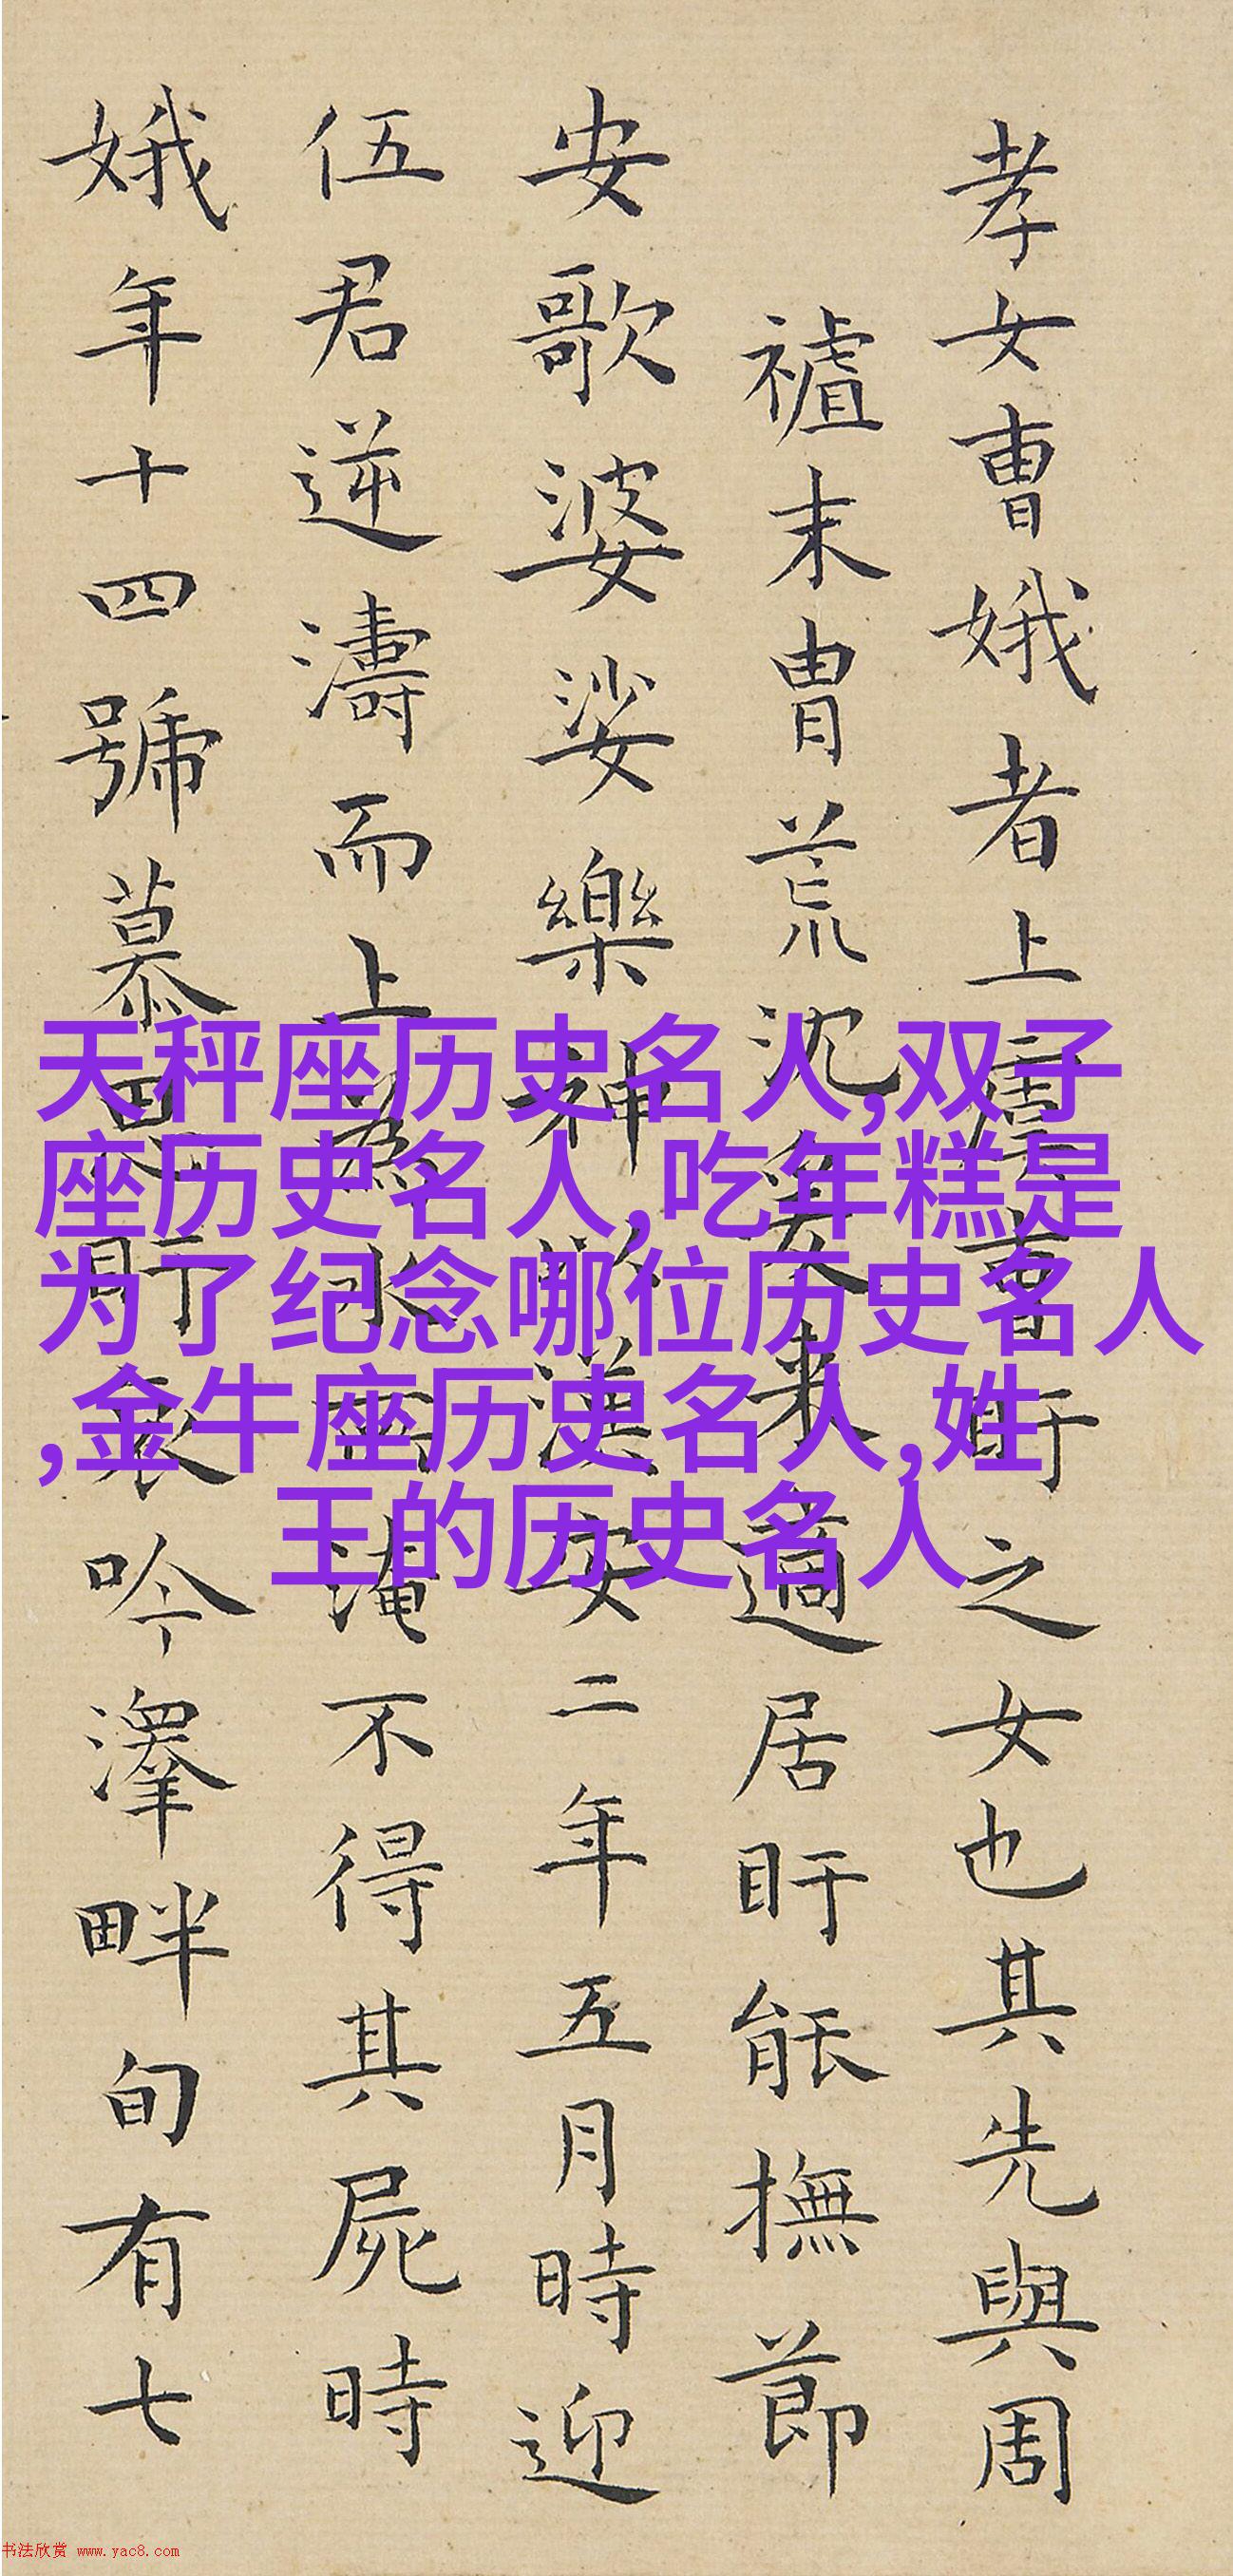 孝女曹娥者上虞曹盱之女也其先與周
祖末胄荒沈爰来適居盱能撫節
安歌婆娑樂神以漢安二年五月時迎
伍君逆濤而上為水所淹不得其屍時
娥年十四號慕思盱哀吟澤畔旬有七
天秤座历史名人,双子
座历史名人,吃年糕是
为了纪念哪位历史名人
,金牛座历史名人,姓
王的历史名人
书法欣赏 www.yac8.com